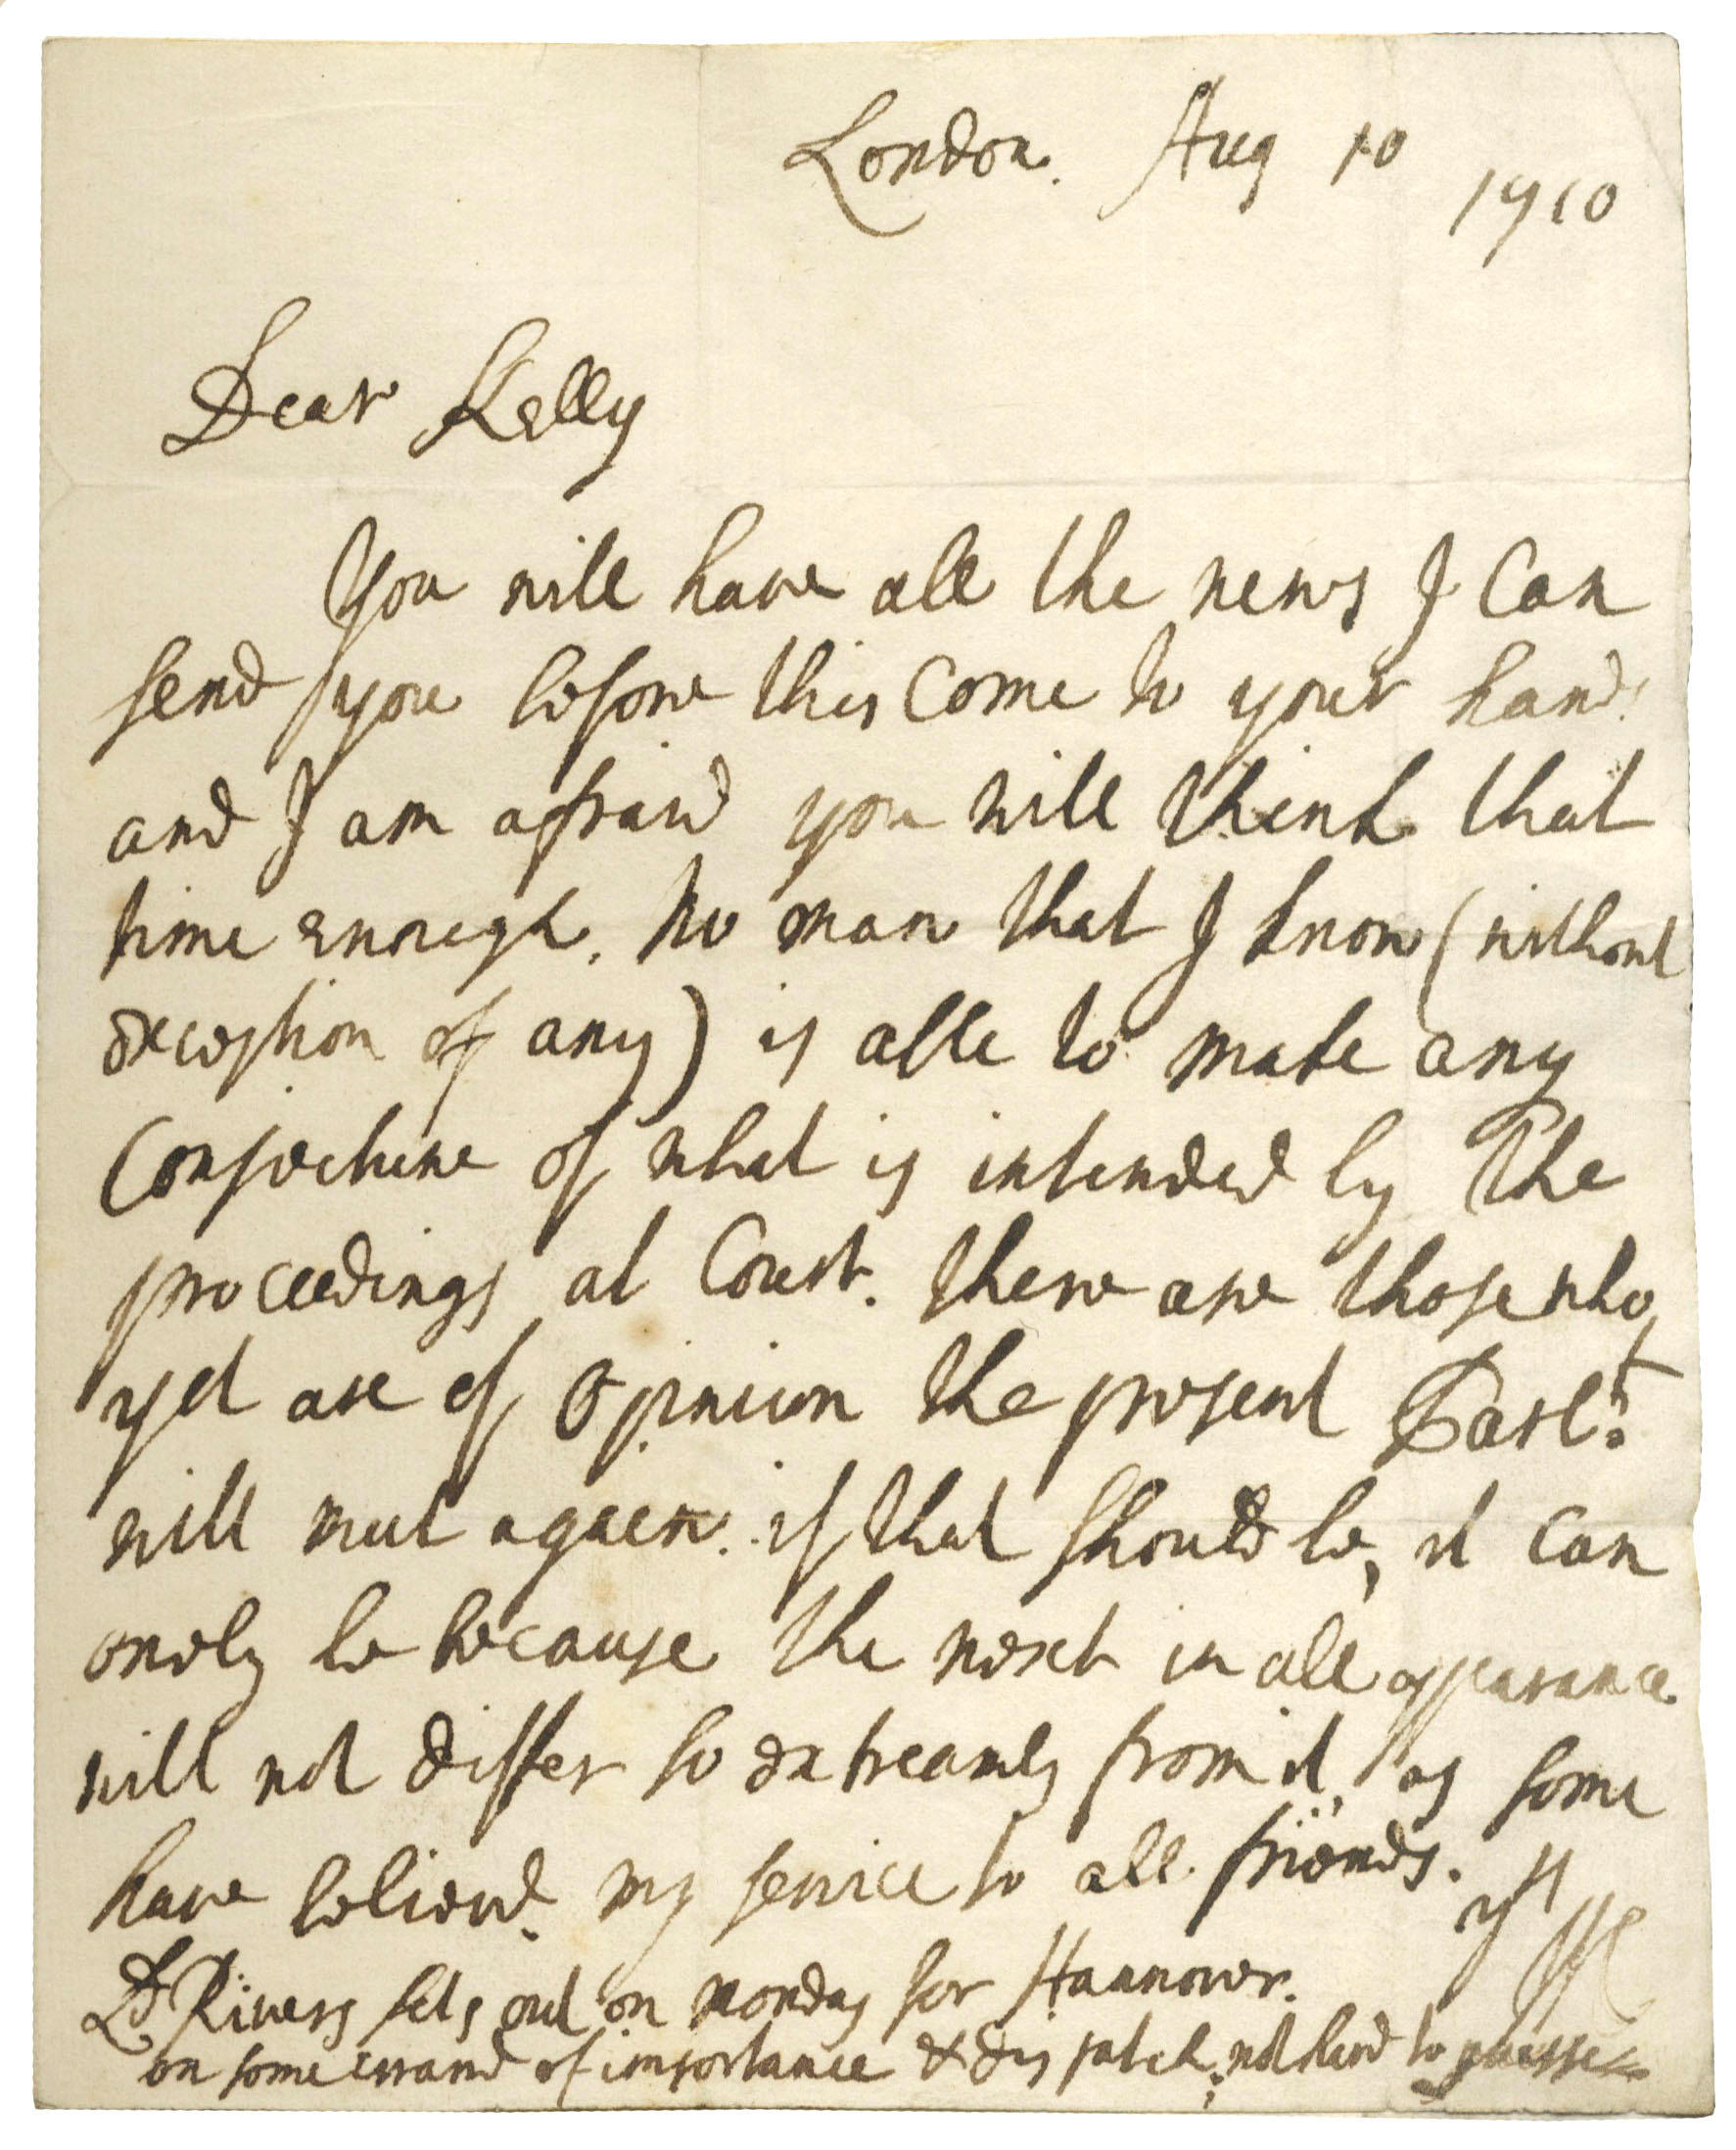 London. Aug 10
1710
Dear Kelly
You will have all the news I can
send you before this come to your hands
and I am afraid you will think that
time enough. No man that I know (without
exception of any) is able to make any
Conjecture of what is intended by the
proceedings at Court. there are those who
yet are of Opinion the present Parlt.
will meet again. if that should be, it can
onely be because the next in all appearance
will not differ so extreamly from it, as some
have believd. my service to all friends.
Ld Rivers sets out on monday for Hannover.
on some errand of importance & dispatch; not hard to guesse